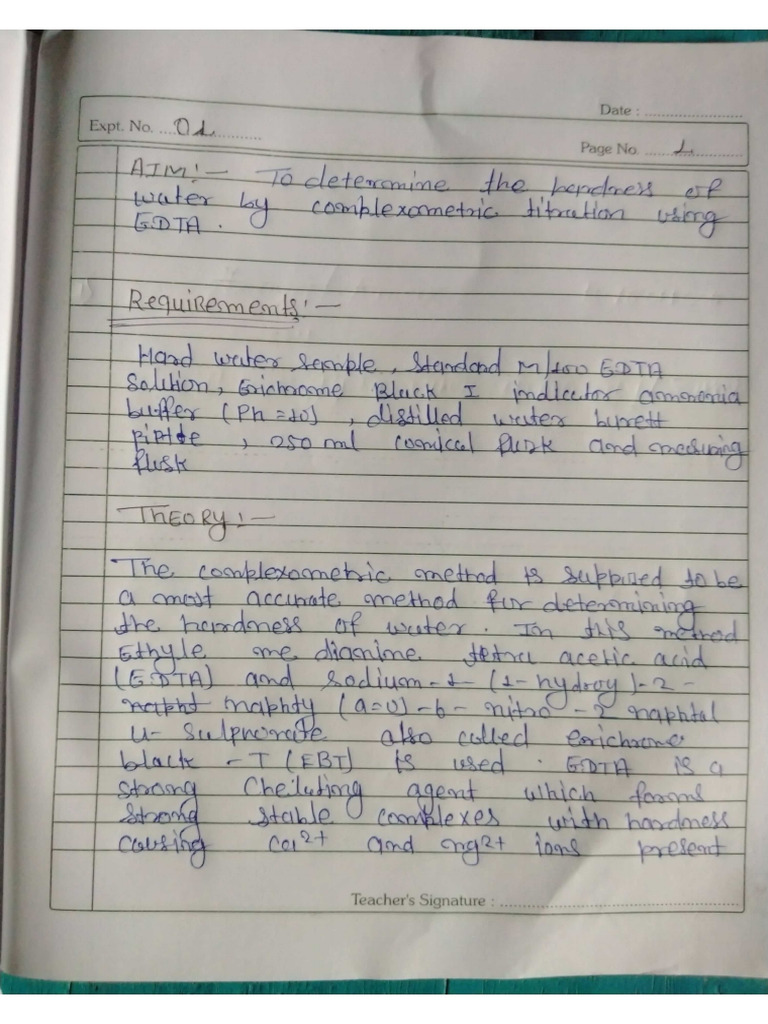 Date :
Expt. No. 01
Page No. 1
AIM:- To determine the hardness of
water by complexometric titration using
EDTA.
Requirements:-
Hard water sample, Standard M/100 EDTA
Solution, Erichrome Black I indicator ammonia
buffer (Ph = 10), distilled water burett
, 250 ml conical flask and measuring
flask
THEORY:-
The complexometric method is supposed to be
a most accurate method for determining
the hardness of water. In this method
Ethyle me diamine tetra acetic acid
(EDTA) and sodium-1-(1-hydroy)-2-
naphty (a=0)-6-nitro-2 naphtal
4- sulphonate also called erichrome
black -T (EBT) is used. EDTA is a
strong Cheilating agent which forms
strong stable complexes with hardness
causing Ca2+ and mg2+ ions present
Teacher's Signature :